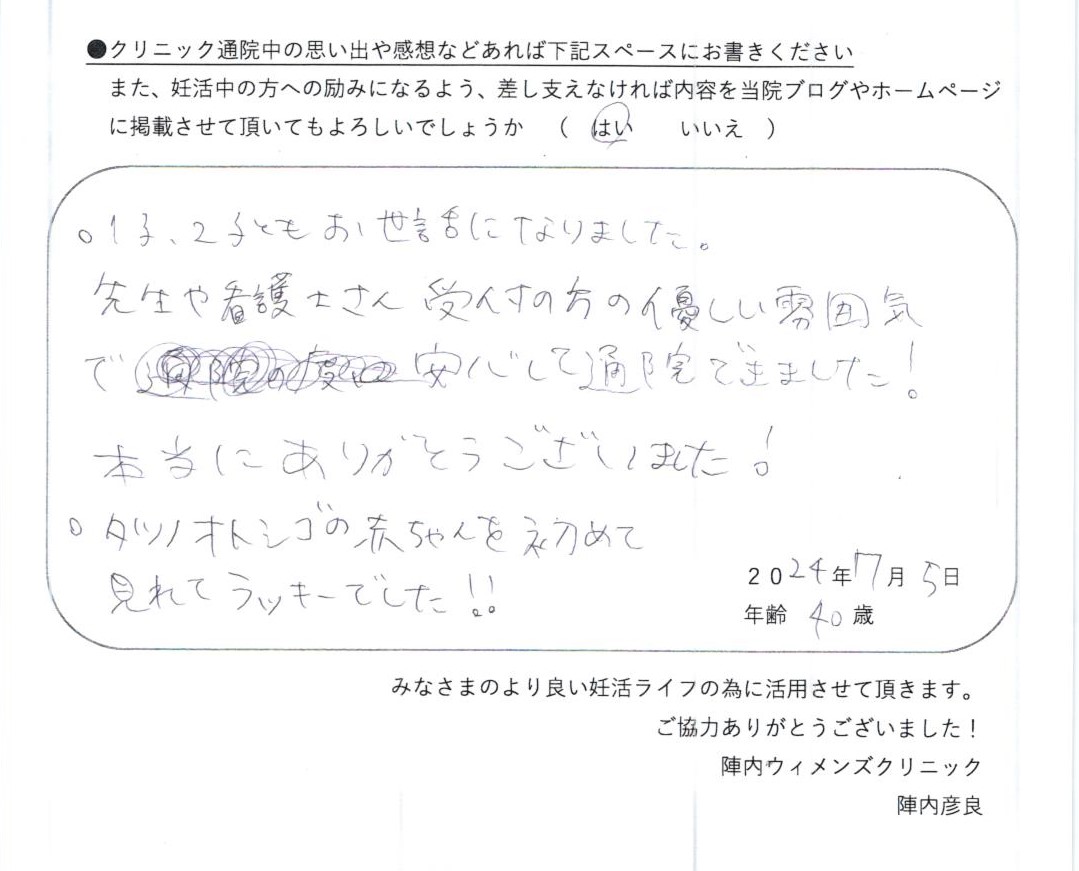 ●クリニック通院中の思い出や感想などあれば下記スペースにお書きください
また、妊活中の方への励みになるよう、差し支えなければ内容を当院ブログやホームページ
に掲載させて頂いてもよろしいでしょうか （ はい いいえ ）
○1子、2子ともお世話になりました。
先生や看護士さん 受付の方の優しい雰囲気
で 安心して通院できました！
本当にありがとうございました！
○タツノオトシゴの赤ちゃんを初めて
見れてラッキーでした！！
2024年7月5日
年齢 40歳
みなさまのより良い妊活ライフの為に活用させて頂きます。
ご協力ありがとうございました！
陣内ウィメンズクリニック
陣内彦良